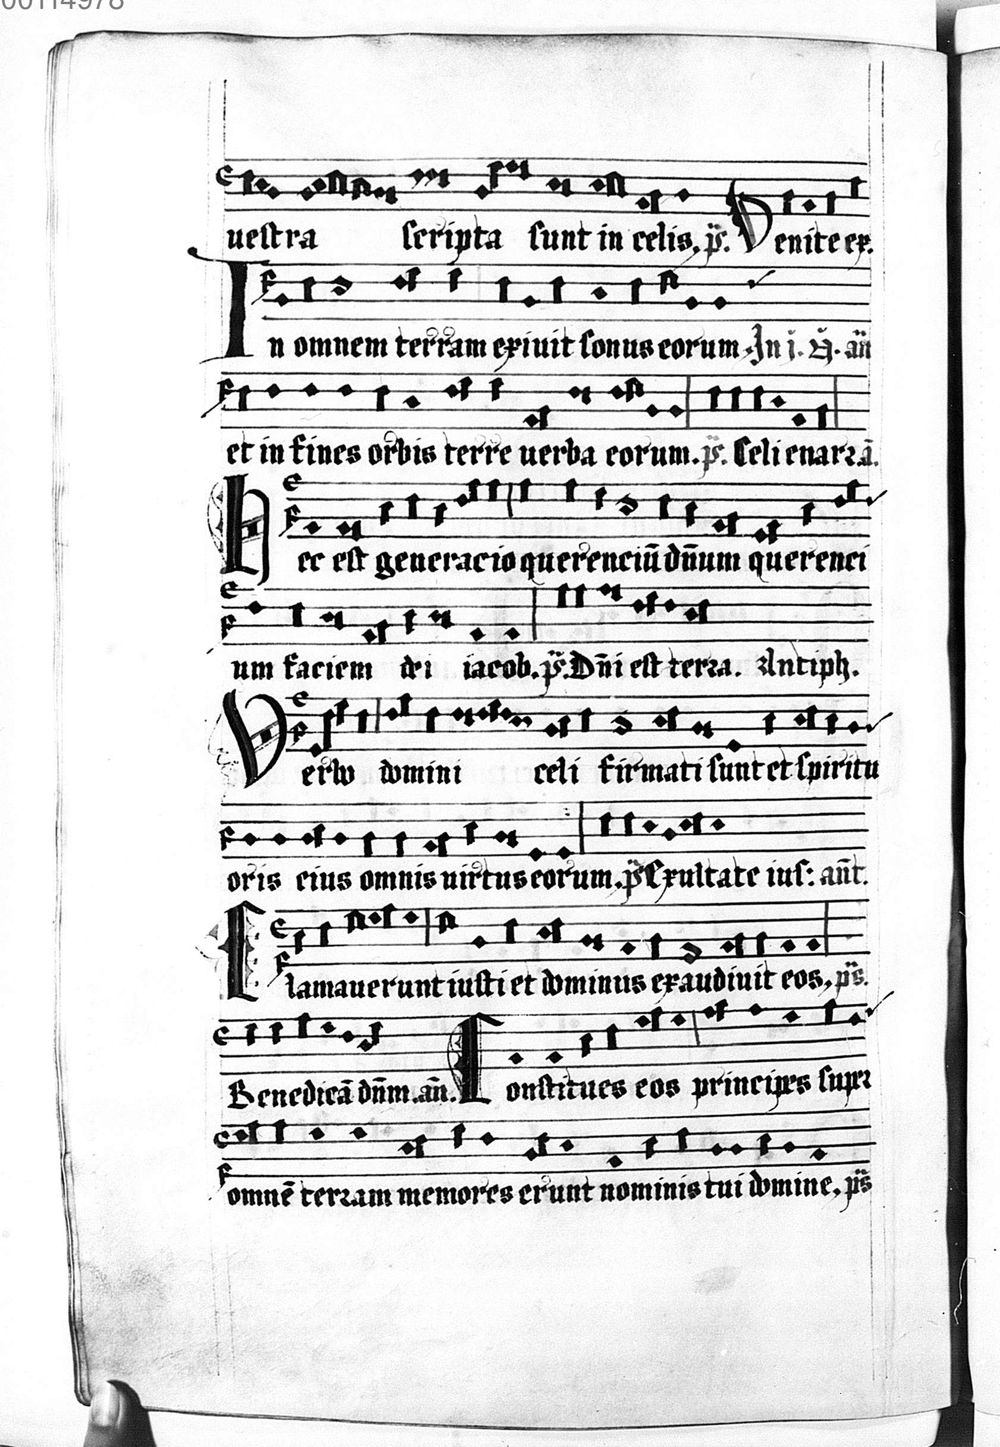 00114978
uestra scripta sunt in celis, ps̄. Venite ex.
In omnem terram exiuit sonus eorum In j. ān
et in fines orbis terre uerba eorum. ps̄. Celi enarrā.
Hec est generacio querenciū dn̄um querenci
um faciem dei iacob. ps̄. Dn̄i est terra. Antiph.
Verbo domini celi firmati sunt et spiritu
oris eius omnis uirtus eorum. ps̄ Exultate ius: an̄t.
Clamauerunt iusti et dominus exaudiuit eos, ps̄.
Benedicā dn̄m. an̄. Constitues eos principes super
omnē terram memores erunt nominis tui domine, ps̄